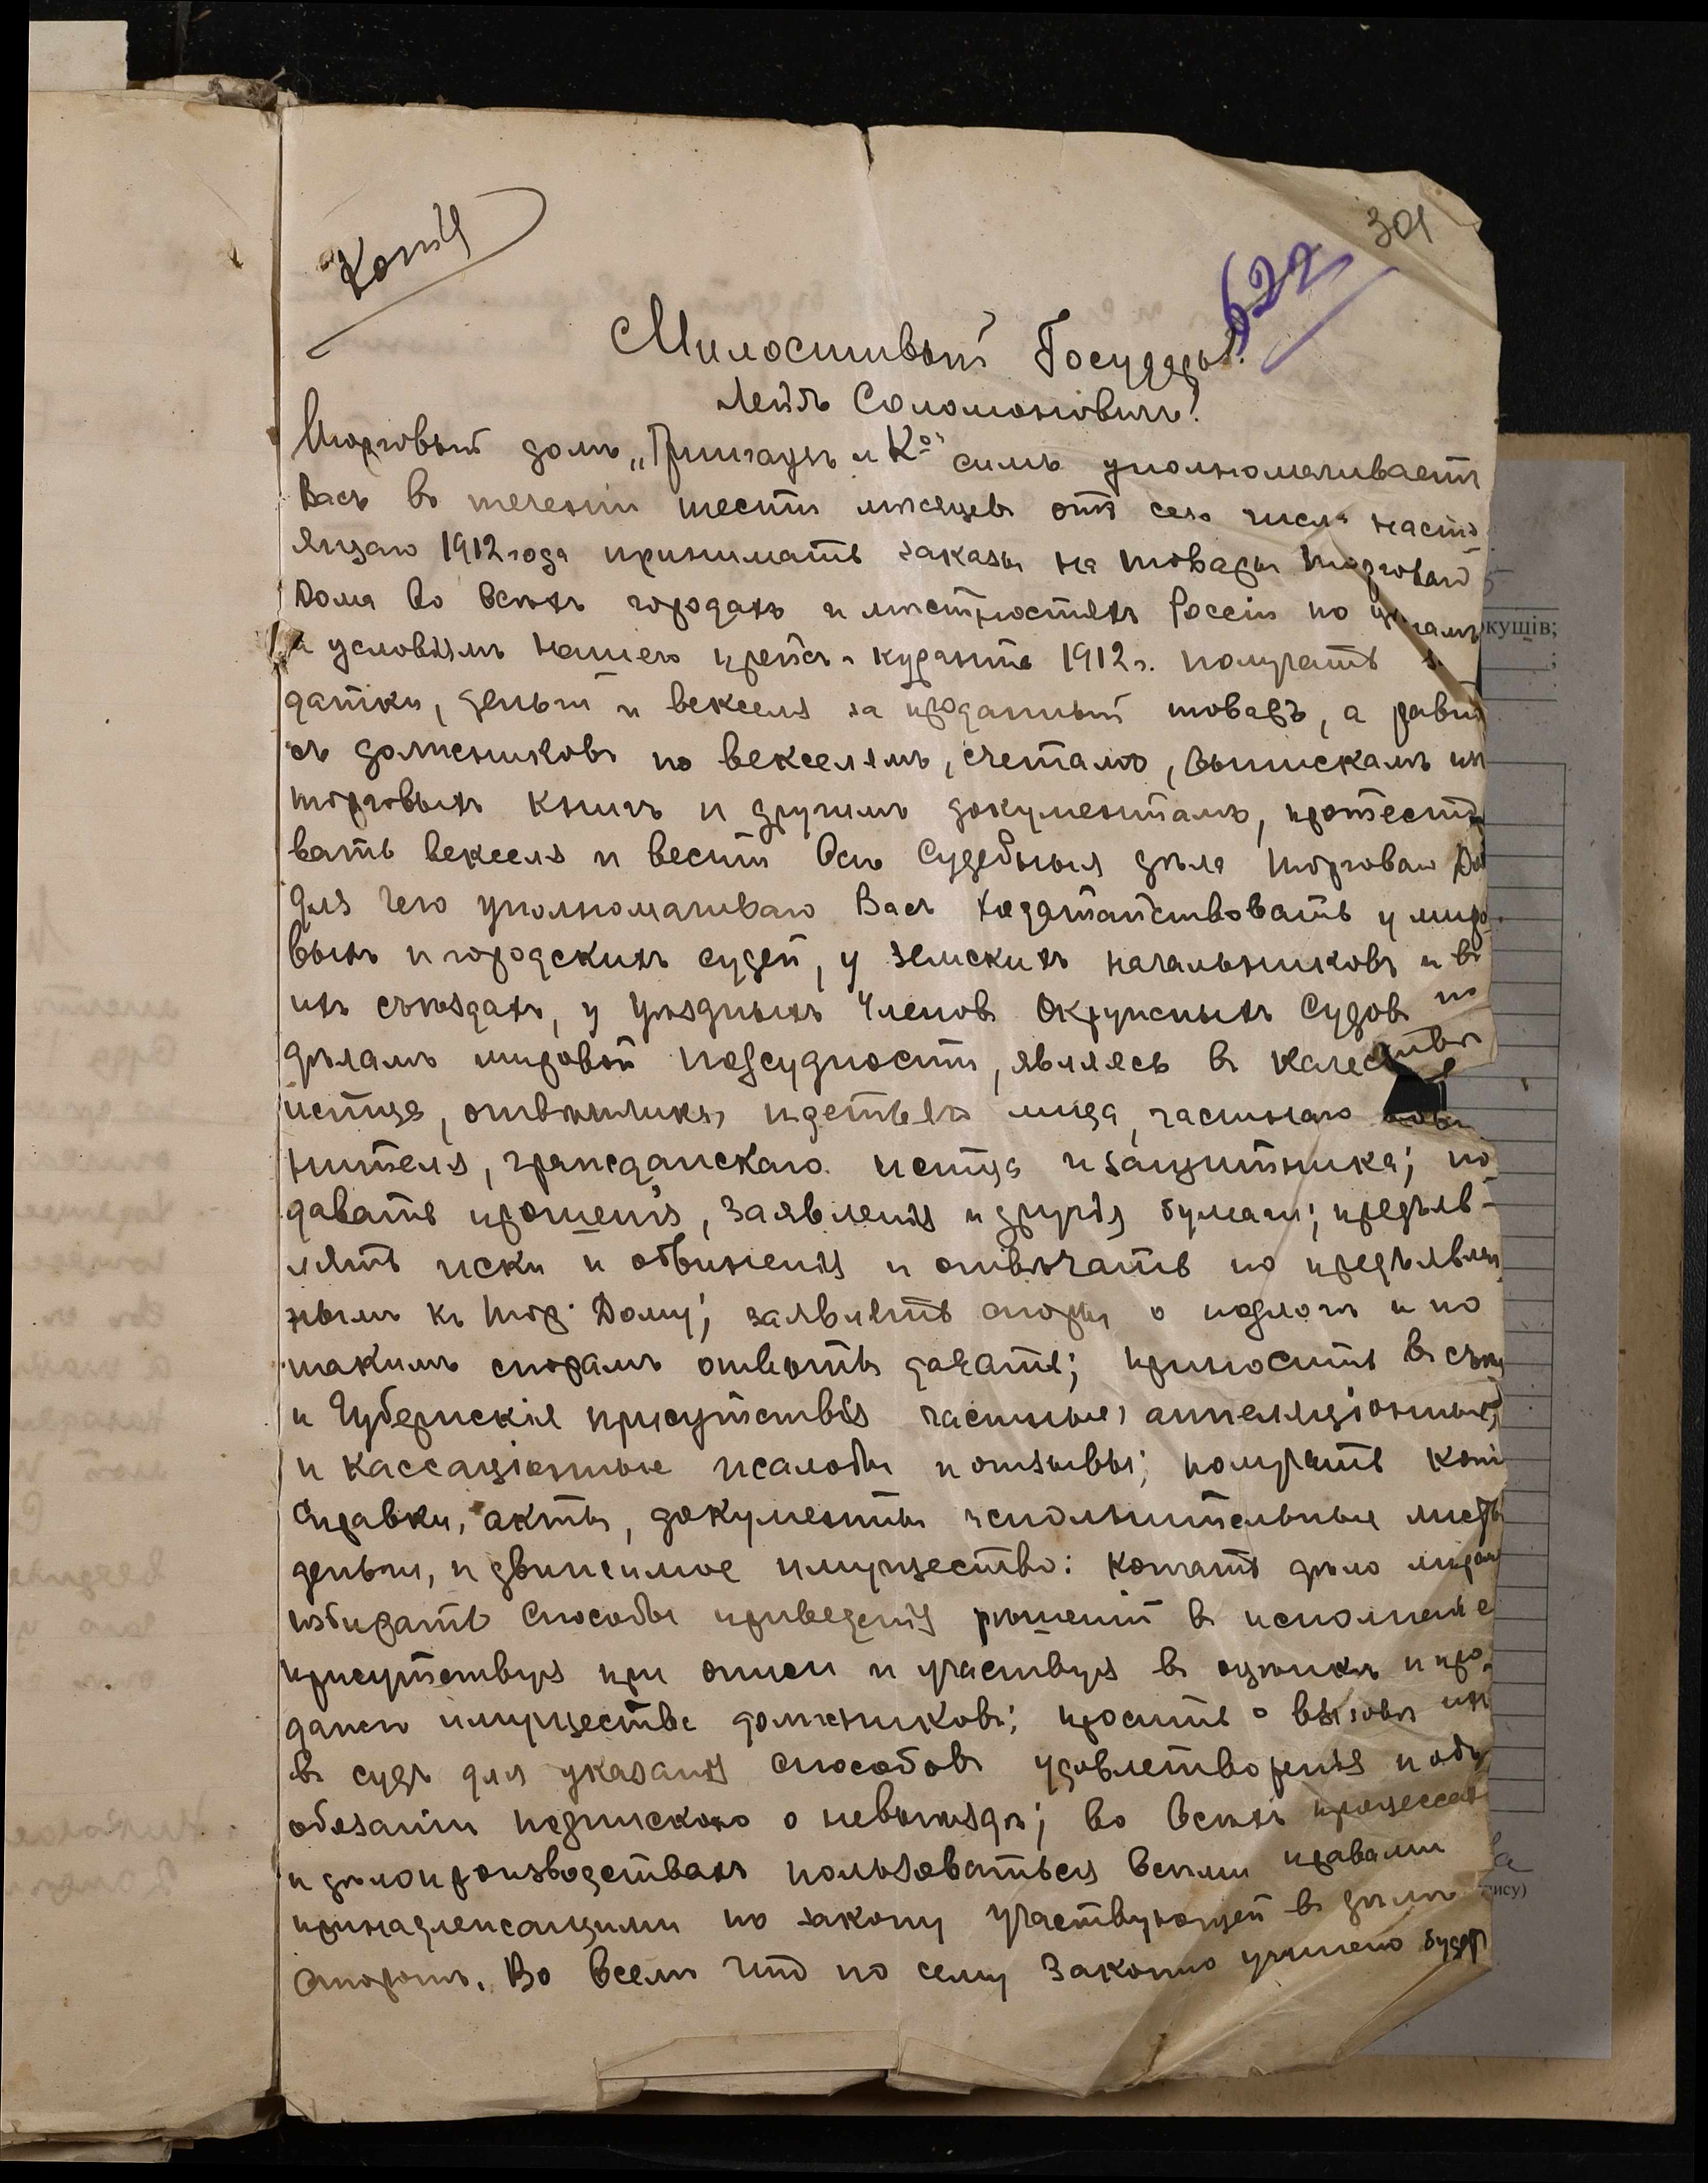 Копія
301
622
Милостивый Государь!
Лейзъ Соломоновичъ!
Торговый домъ „Гришгаузъ и Ко" симъ уполномачиваетъ
Васъ въ теченіи шести мѣсяцевъ отъ сего числа насто
ящаго 1912 года принимать заказы на товары Торговаго
Дома во всѣхъ городахъ и мѣстностяхъ Россіи по цѣнамъ
и условіямъ нашего прейсъ-куранта 1912 г. получать за
датки, деньги и векселя за проданный товаръ, а равно
съ должниковъ по векселямъ, счетамъ, выпискамъ изъ
торговыхъ книгъ и другимъ документамъ, протесто
вать векселя и вести всѣ судебныя дѣла Торговаго До
для чего уполномачиваю Васъ ходатайствовать у миро
выхъ и городскихъ судей, у земскихъ начальниковъ и въ
ихъ съѣздахъ, у Уѣздныхъ Членовъ Окружныхъ Судовъ по
дѣламъ мировой подсудности, являясь въ качествѣ
истца, отвѣтчика, третьяго лица, частнаго
нителя, гражданскаго истца и защитника; по
давать прошенія, заявленія и другія бумаги; предъяв-
лять иски и обвиненія и отвѣчать по предъявлен
нымъ къ Торг. Дому; заявлять споры о подлогѣ и по
такимъ спорамъ отвѣты давать; приносить въ съѣзды
и Губернскія присутствія частныя, аппелляціонныя,
и кассаціонныя жалобы и отзывы; получать копіи
справки, акты, документы исполнительные листы
деньги, и движимое имущество: кончать дѣло миромъ
избирать способы приведенія рѣшеній въ исполненіе
присутствуя при описи и участвуя въ оцѣнкѣ и про-
дажѣ имущества должниковъ; просить о вызовѣ ихъ
въ судъ для указанія способовъ удовлетворенія и объ
обязаніи подпискою о невыѣздѣ; во всѣхъ процессахъ
и дѣлопроизводствахъ пользоваться всѣми правами
принадлежащими по закону участвующей въ дѣлѣ
сторонѣ. Во всемъ что по сему законно учинено будетъ
кущів;
пису)